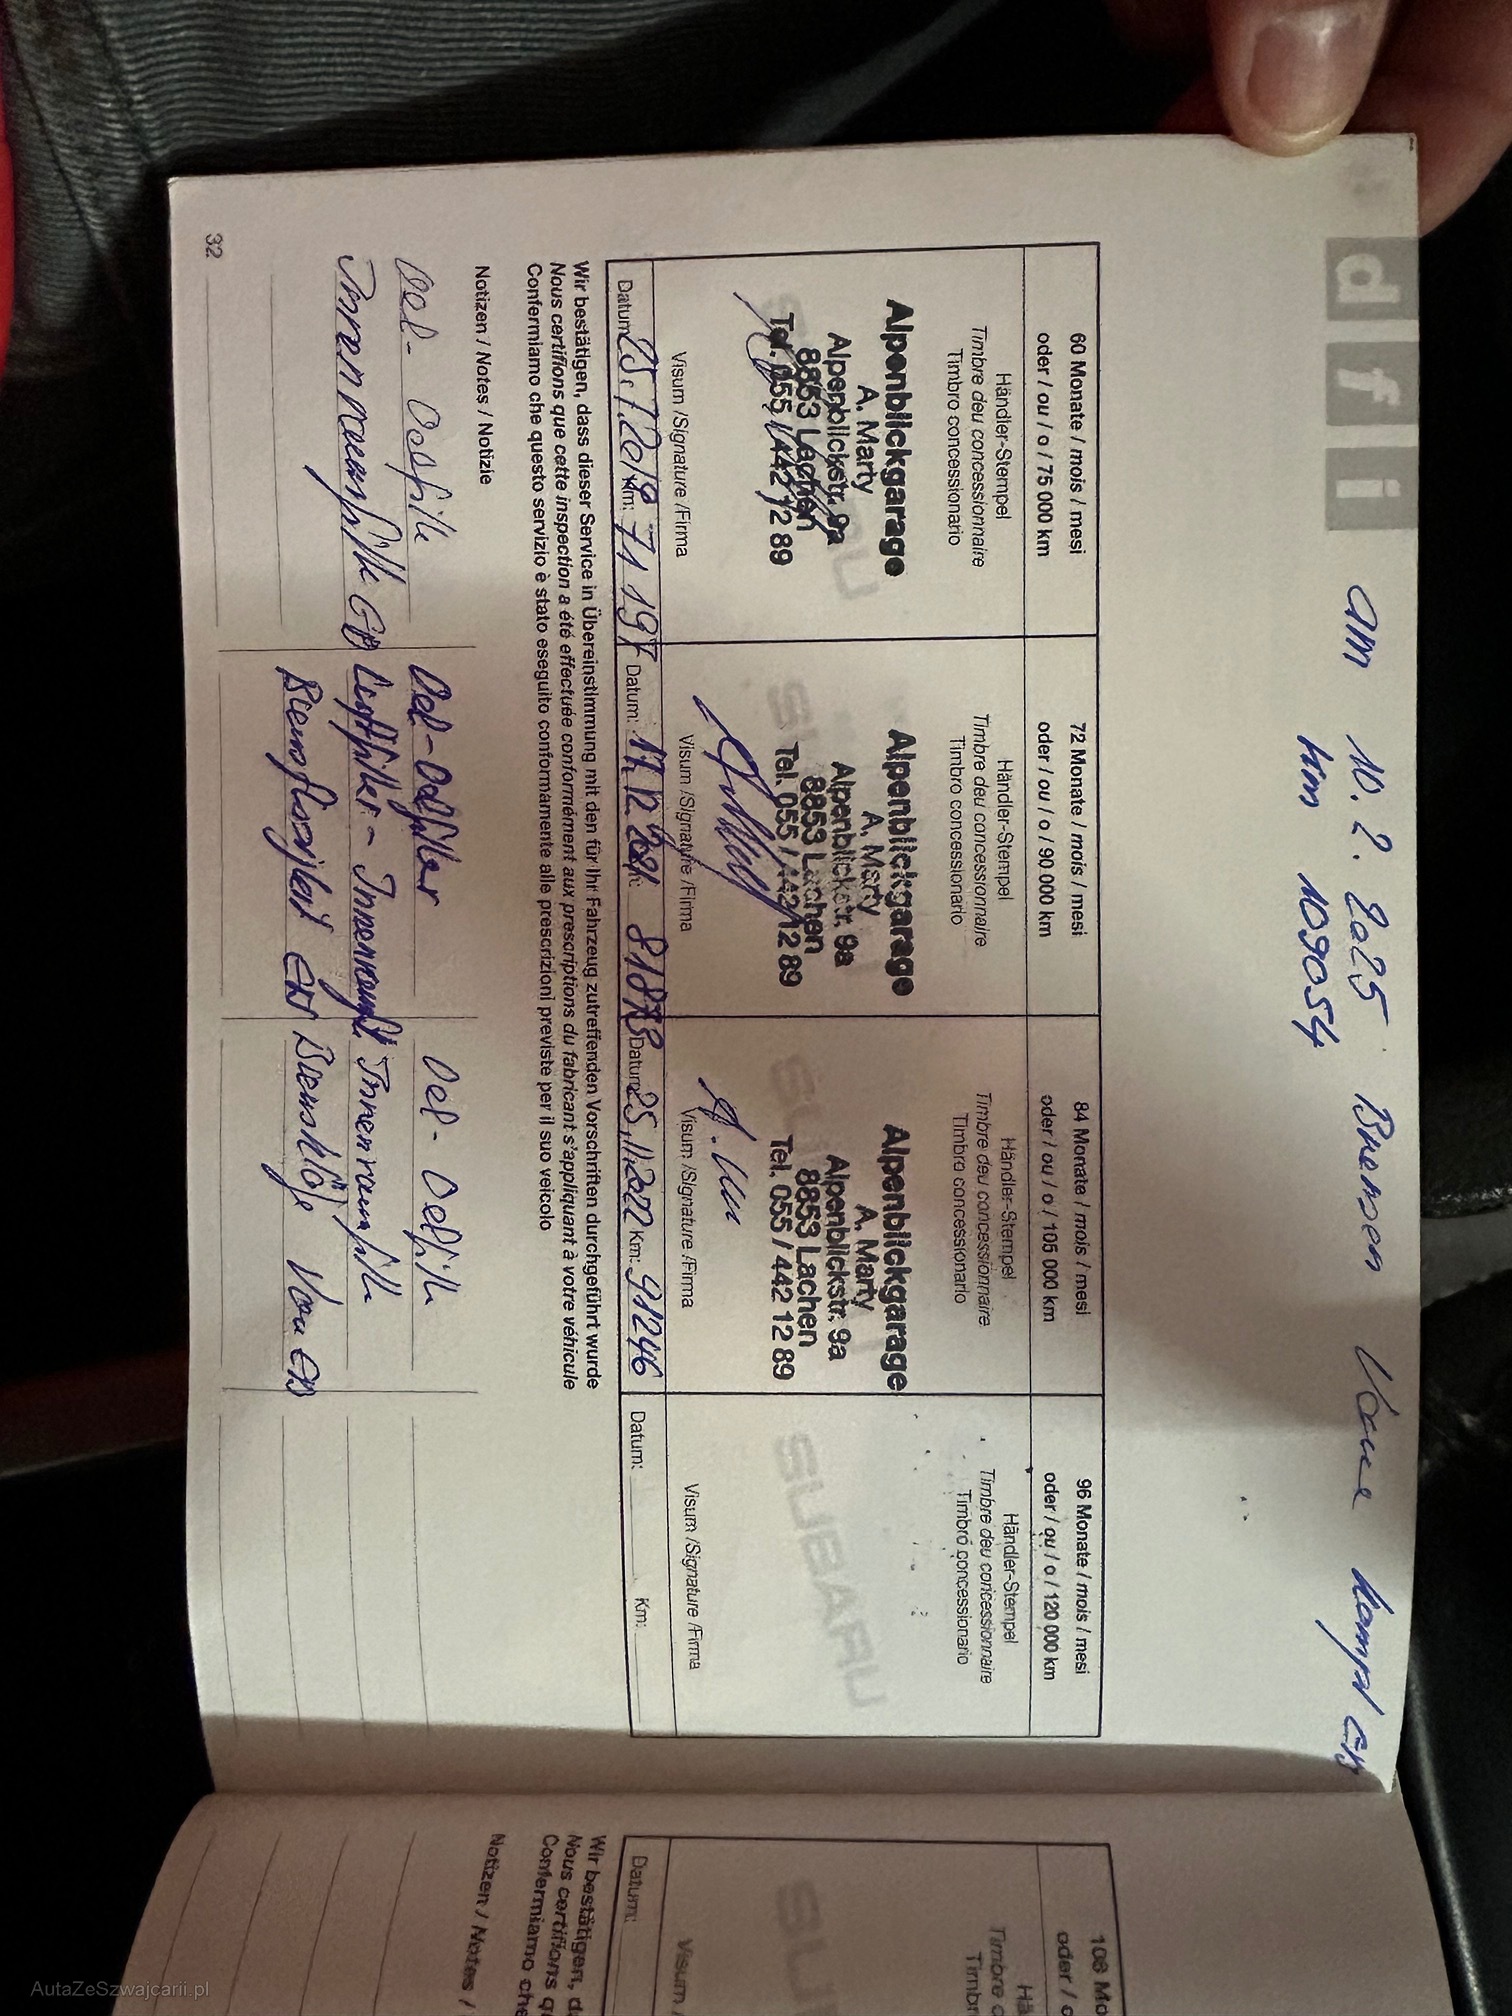 d f i
am 10.2.2025 Bremsen Vorne kompl ers
km 109054
60 Monate / mois / mesi
oder / ou / o / 75 000 km
Händler-Stempel
Timbre deu concessionnaire
Timbro concessionario
Alpenblickgarage
A. Marty
Alpenblickstr. 9a
8853 Lachen
Tel. 055 / 442 12 89
Visum /Signature /Firma
Datum: 25.7.2019 Km: 71 197
72 Monate / mois / mesi
oder / ou / o / 90 000 km
Händler-Stempel
Timbre deu concessionnaire
Timbro concessionario
Alpenblickgarage
A. Marty
Alpenblickstr. 9a
8853 Lachen
Tel. 055 / 442 12 89
Visum /Signature /Firma
Datum: 17.12.2021 81873
84 Monate / mois / mesi
oder / ou / o / 105 000 km
Händler-Stempel
Timbre deu concessionnaire
Timbro concessionario
Alpenblickgarage
A. Marty
Alpenblickstr. 9a
8853 Lachen
Tel. 055 / 442 12 89
Visum /Signature /Firma
Datum: 25.11.2022 Km: 91246
96 Monate / mois / mesi
oder / ou / o / 120 000 km
Händler-Stempel
Timbre deu concessionnaire
Timbro concessionario
SUBARU
Visum /Signature /Firma
Datum: Km:
Wir bestätigen, dass dieser Service in Übereinstimmung mit den für Ihr Fahrzeug zutreffenden Vorschriften durchgeführt wurde
Nous certifions que cette inspection a été effectuée conformément aux prescriptions du fabricant s'appliquant à votre véhicule
Confermiamo che questo servizio è stato eseguito conformamente alle prescrizioni previste per il suo veicolo
Notizen / Notes / Notizie
Oel- Oelfilter
Innenraumfilter ers
Oel-Oelfilter
Luftfilter - Innenraumf.
Bremsflüssigkeit ers
Oel- Oelfilter
Innenraumfilter
Bremsklötze Vorn ers
32
108 Mo
Datum:
Visum /
Wir bestätigen, d
Nous certifions q
Confermiamo che
Notizen / Notes /
AutaZeSzwajcarii.pl